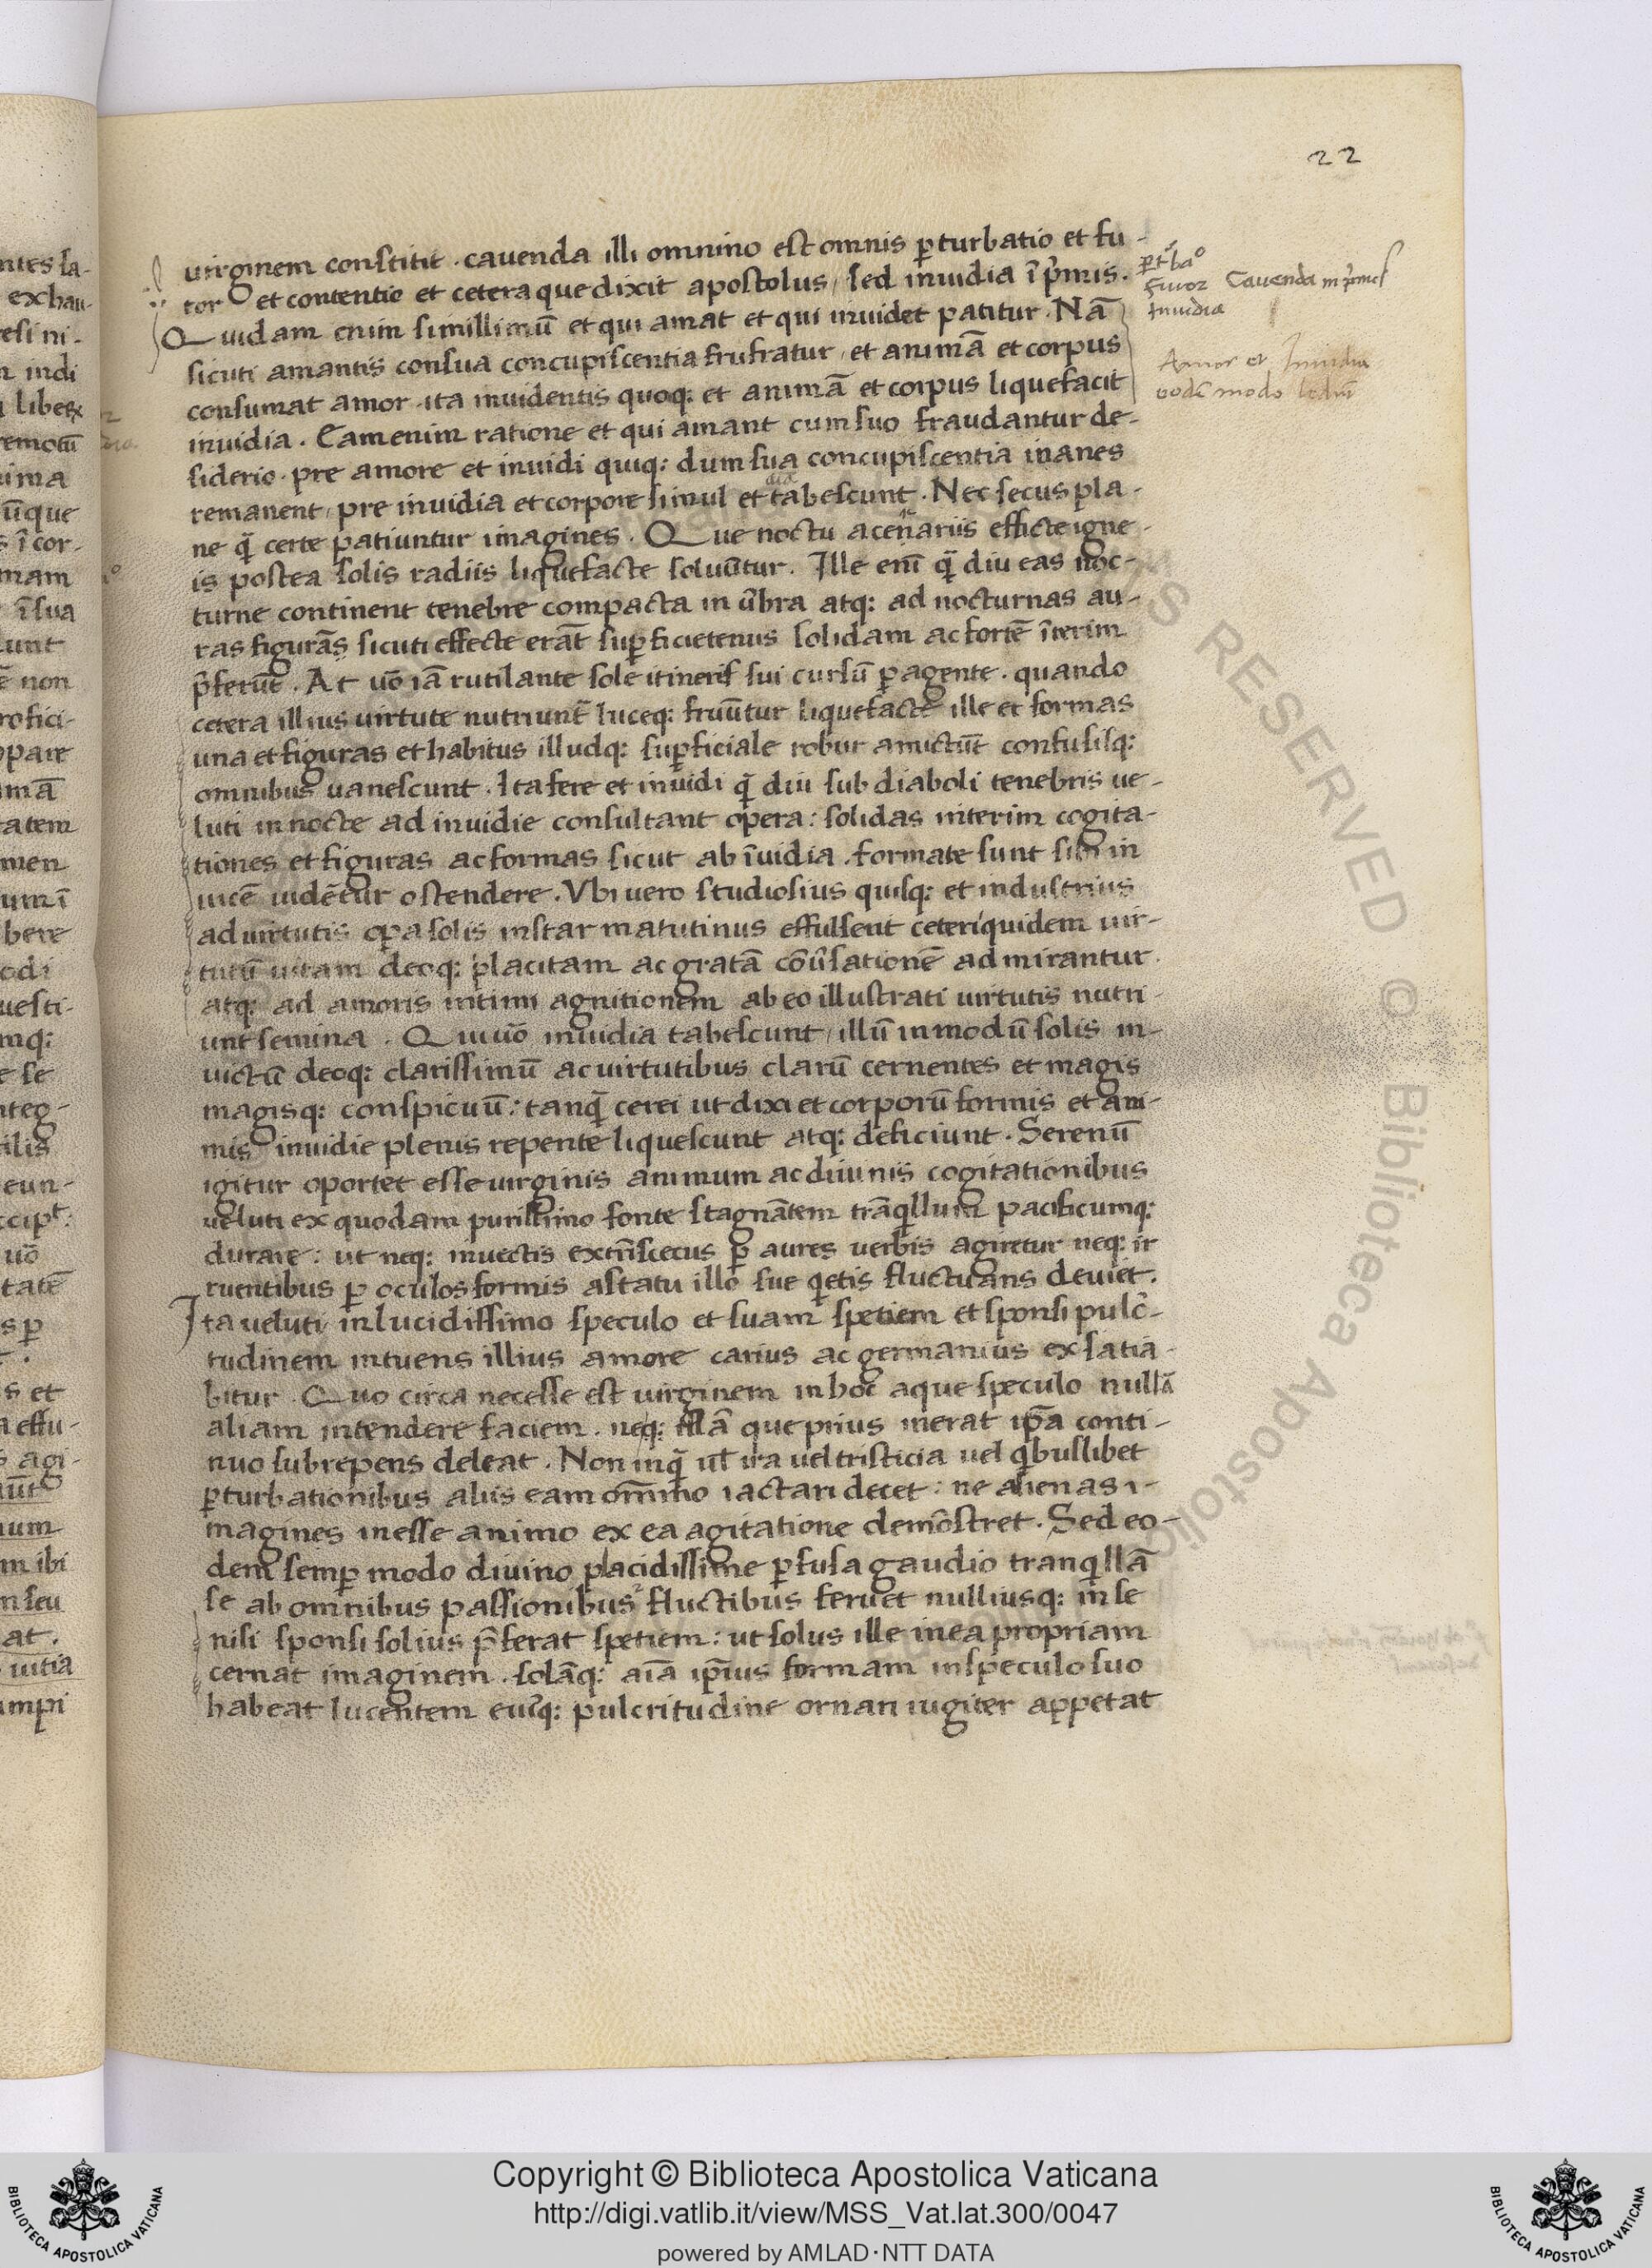 22
uirginem constitit . cauenda illi omnino est omnis ꝑturbatio et fu-
ror et contentio et cetera que dixit apostolus / sed inuidia ī pͥmis .
Quidam enim simillimū et qui amat et qui inuidet patitur . Nā
sicuti amantis consua concupiscentia frustratur / et animā et corpus
consumat amor . ita inuidentis quoq: et animā et corpus liquefacit
inuidia . Eamenim ratione et qui amant cum suo fraudantur de-
siderio . pre amore et inuidi quiq: dum sua concupiscentia inanes
remanent / pre inuidia et corpore simul et tabescunt . Nec secus pla-
ne q̄ certe patiuntur imagines . Que noctu a cenariis efficte igne-
is postea solis radiis liquefacte soluūtur . Ille enī q̄ diu eas noc-
turne continent tenebre compacta in ūbra atq: ad nocturnas au-
ras figurās sicuti effecte erāt suꝑficietenus solidam ac fortē īterim
p̄ferūt . At uō iā rutilante sole itineris sui cursū ꝑagente . quando
cetera illius uirtute nutriunt̄ luceq: fruūtur liquefacte ille et formas
una et figuras et habitus illudq: suꝑficiale robur amictūt confusisq:
omnibus uanescunt . Ita fere et inuidi q̄ diu sub diaboli tenebris ue-
luti in nocte ad inuidie consultant opera : solidas interim cogita-
tiones et figuras ac formas sicut ab īuidia . formate sunt sibi in
uicē uidētur ostendere . Vbi uero studiosius quisq: et industrius
ad uirtutis oꝑa solis instar matutinus effulserit ceteri quidem uir-
tutū uitam deoq: placitam ac gratā cōuͥsationē admirantur .
atq: ad amoris intimi agnitionem ab eo illustrati uirtutis nutri-
unt semina . Qui uō inuidia tabescunt / illū in modū solis in-
uictū deoq: clarissimū ac uirtutibus clarū cernentes et magis
magisq: conspicuū : tanq̄ cerei ut dixi et corporū formis et ani-
mis inuidie plenis repente liquescunt atq: deficiunt . Serenū
igitur oportet esse uirginis animum ac diuinis cogitationibus
ueluti ex quodam purissimo fonte stagnātem trāqͥllum pacificumq:
durare : ut neq: inuectis extrīscecus ꝑ aures uerbis agitetur neq: ir
ruentibus ꝑ oculos formis astatu illo sue qͥetis fluctuans deuiet .
Ita ueluti in lucidissimo speculo et suam spetiem et sponsi pulc̄-
tudinem intuens illius amore carius ac germanius exsatia-
bitur . Quo circa necesse est uirginem in hoc aque speculo nullā
aliam intendere faciem . neq: illā que prius inerat ip̄a conti-
nuo subrepens deleat . Non inq̄ ul̄ ira uel tristicia uel qͥbuslibet
ꝑturbationibus aliis eam om̄ino iactari decet : ne alienas i-
magines inesse animo ex ea agitatione demōstret . Sed eo-
dem semꝑ modo diuino placidissime ꝑfusa gaudio tranqͥllā
se ab omnibus passionibus fluctibus seruet nulliusq: in se
nisi sponsi solius p̄ferat spetiem : ut solus ille in ea propriam
cernat imaginem . solāq: aīa ip̄ius formam in speculo suo
habeat lucentem eiusq: pulcritudine ornari iugiter appetat
ꝑt̄baᵒ
furor Cauenda in pͥmis
Inuidia
Amor et Inuidia
eodē modo ledūt
Copyright © Biblioteca Apostolica Vaticana
http://digi.vatlib.it/view/MSS_Vat.lat.300/0047
powered by AMLAD·NTT DATA